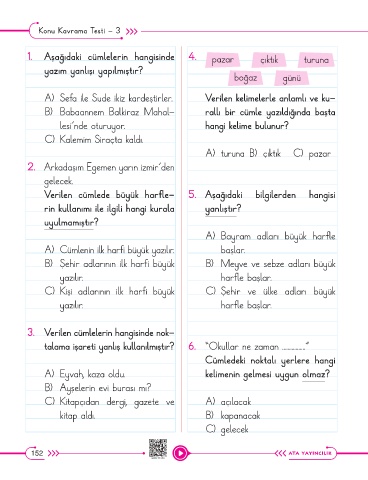 Konu Kavrama Testi - 3
1. Aşağıdaki cümlelerin hangisinde
yazım yanlışı yapılmıştır?
A) Sefa ile Sude ikiz kardeştirler.
B) Babaannem Balkiraz Mahal-
lesi'nde oturuyor.
C) Kalemim Siraçta kaldı.
2. Arkadaşım Egemen yarın izmir'den
gelecek.
Verilen cümlede büyük harfle-
rin kullanımı ile ilgili hangi kurala
uyulmamıştır?
A) Cümlenin ilk harfi büyük yazılır.
B) Şehir adlarının ilk harfi büyük
yazılır.
C) Kişi adlarının ilk harfi büyük
yazılır.
3. Verilen cümlelerin hangisinde nok-
talama işareti yanlış kullanılmıştır?
A) Eyvah, kaza oldu.
B) Ayselerin evi burası mı?
C) Kitapçıdan dergi, gazete ve
kitap aldı.
4. pazar çıktık turuna
boğaz günü
Verilen kelimelerle anlamlı ve ku-
rallı bir cümle yazıldığında başta
hangi kelime bulunur?
A) turuna B) çıktık C) pazar
5. Aşağıdaki bilgilerden hangisi
yanlıştır?
A) Bayram adları büyük harfle
başlar.
B) Meyve ve sebze adları büyük
harfle başlar.
C) Şehir ve ülke adları büyük
harfle başlar.
6. "Okullar ne zaman ..............."
Cümledeki noktalı yerlere hangi
kelimenin gelmesi uygun olmaz?
A) açılacak
B) kapanacak
C) gelecek
152
ATA YAYINCILIK